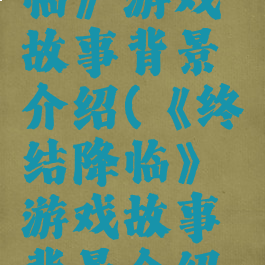 临》游戏
故事背景
介绍(《终
结降临》
游戏故事
背景介绍